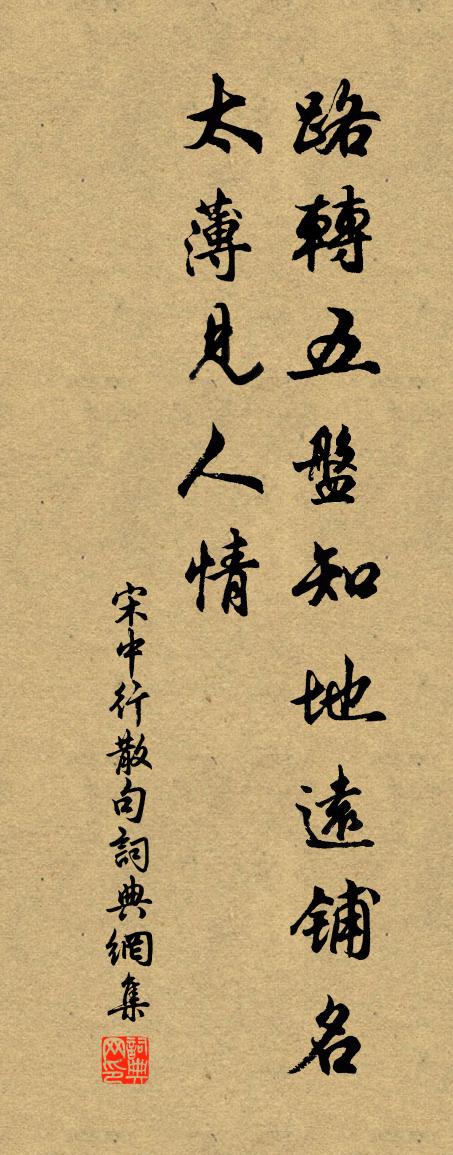 路轉五盤知地遠鋪名
太薄見人情
宋中行散句詞典網集
詞典网印